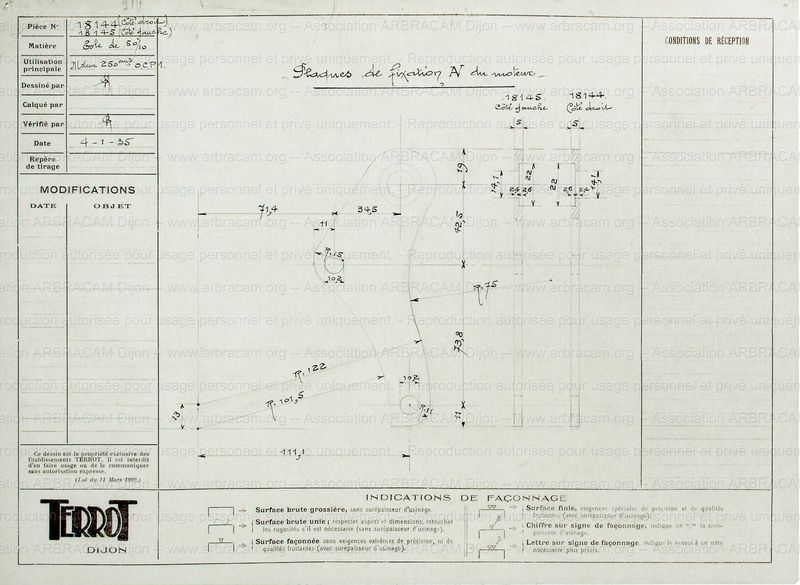 Pièce N° 18144 (Côté droit)
18145 (Côté gauche)
Matière Tôle de 50/10
Utilisation principale Moteur 250 cm3 O.C.P1.
Dessiné par
Calqué par
Vérifié par
Date 4-1-35
Repère de tirage
MODIFICATIONS
DATE OBJET
Plaques de fixation AV du moteur
CONDITIONS DE RÉCEPTION
18145 18144
Côté gauche Côté droit
5 5
19
14,1 22 22 14,1
24 26 26 24
71,4 34,5
11
42,5
R.15
102
R.75
73,8
R.122
102
R.101,5
R.11
13
11
111,1
Ce dessin est la propriété exclusive des
Etablissements TERROT. Il est interdit
d'en faire usage ou de le communiquer
sans autorisation expresse.
(Loi du 11 Mars 1902.)
TERROT
DIJON
INDICATIONS DE FAÇONNAGE
Surface brute grossière, sans surépaisseur d'usinage.
Surface brute unie; respecter aspect et dimensions, retoucher
les rugosités s'il est nécessaire (sans surépaisseur d'usinage).
Surface façonnée sans exigences extrêmes de précision, ni de
qualités frottantes (avec surépaisseur d'usinage).
Surface finie, exigences spéciales de précision et de qualités
frottantes (avec surépaisseur d'usinage).
Chiffre sur signe de façonnage, indique en "/" la surépaisseur
d'usinage.
Lettre sur signe de façonnage, indique le renvoi à un note
nécessaire plus précis.
www.arbracam.org – Association ARBRACAM Dijon – www.arbracam.org – Association ARBRACAM Dijon
Reproduction autorisée pour usage personnel et privé uniquement.